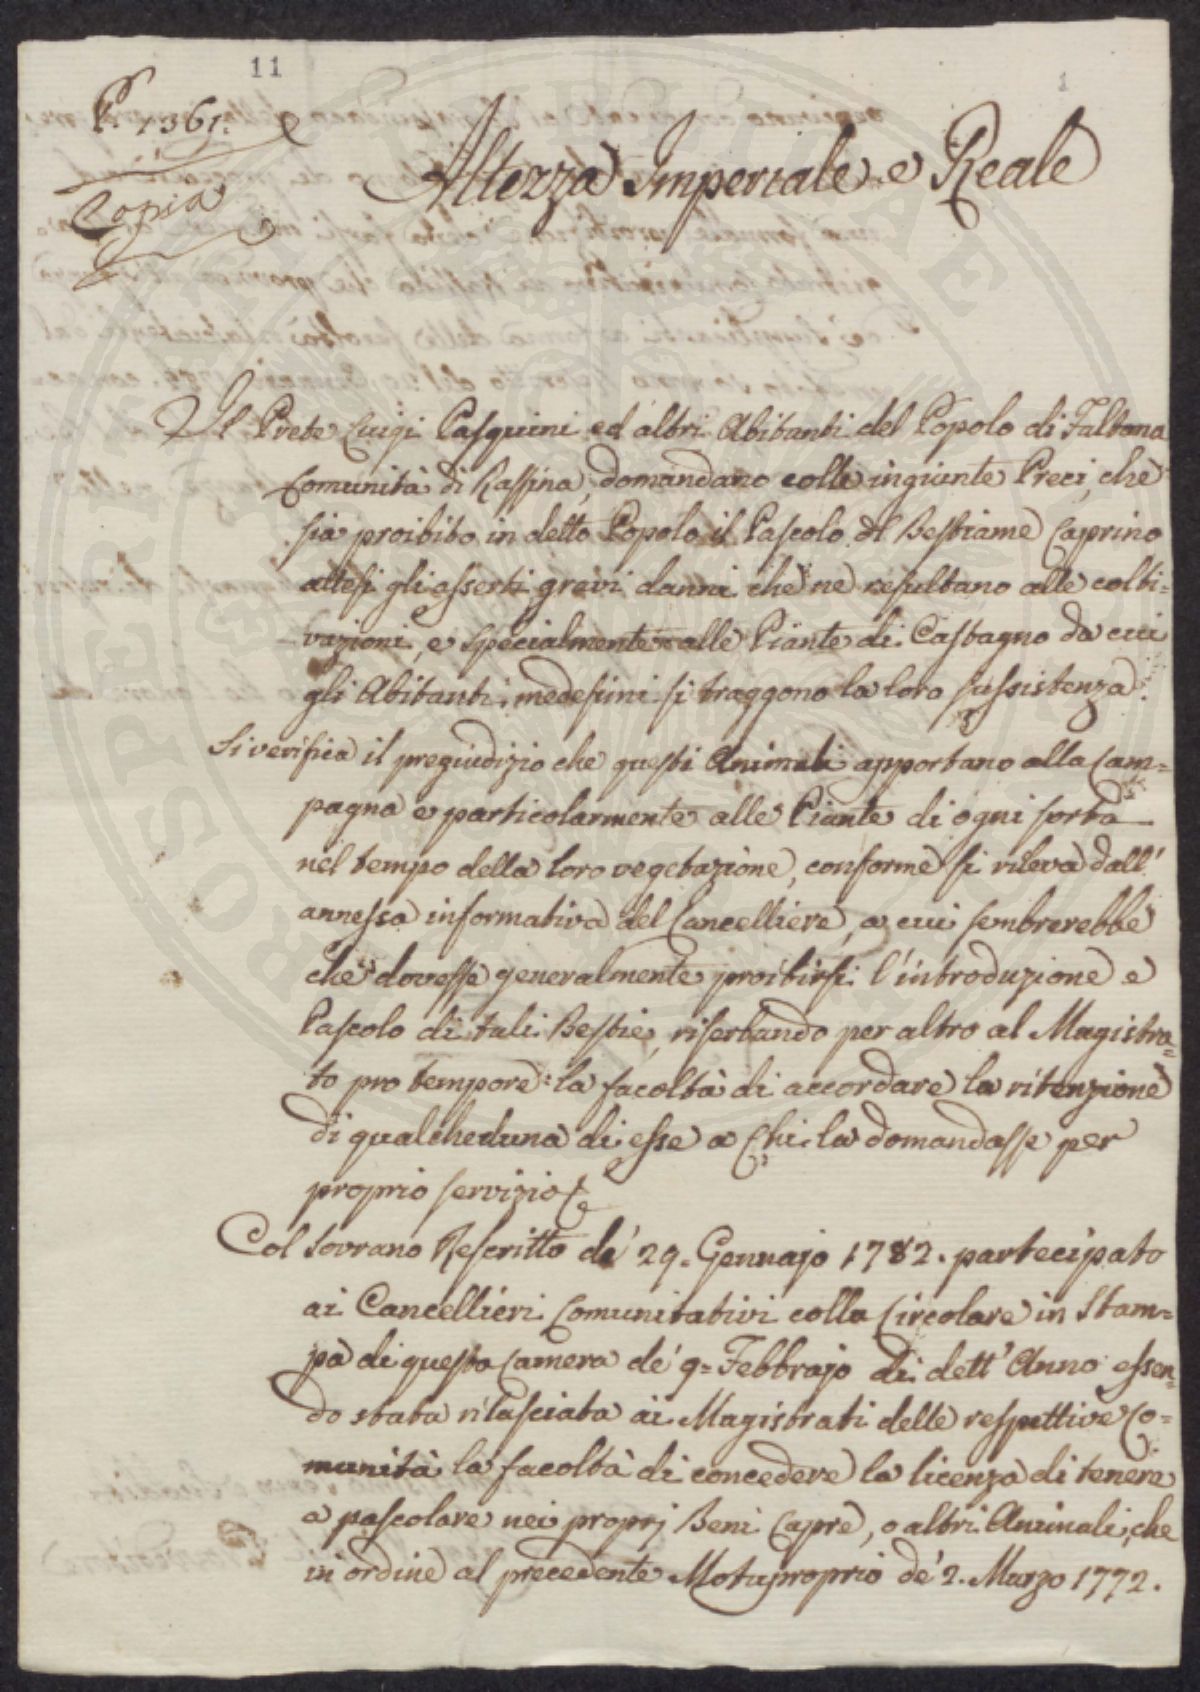 11
1
P. 1361.
Copia
Altezza Imperiale e Reale
Il Prete Luigi Pasquini ed altri Abitanti del Popolo di Faltona
Comunità di Rassina, domandano colle ingiunte Preci, che
sia proibito in detto Popolo il Pascolo del Bestiame Caprino
attesi gli asserti gravi danni che ne resultano alle colti=
vazioni, e specialmente alle Piante di Castagno da cui
gli Abitanti medesimi si traggono la loro sussistenza.
Si verifica il pregiudizio che questi Animali apportano alla Cam=
pagna e particolarmente alle Piante di ogni sorta
nel tempo della loro vegetazione, conforme si rileva dall'
annessa informativa del Cancelliere, a cui sembrerebbe
che dovesse generalmente proibirsi l'introduzione e
Pascolo di tali Bestie, riserbando per altro al Magistra=
to pro tempore la facoltà di accordare la ritenzione
di qualcheduna di esse a chi la domandasse per
proprio servizio
Col Sovrano Rescritto de' 29. Gennajo 1782. partecipato
ai Cancellieri Comunitativi colla Circolare in Stam=
pa di questa Camera de' 9= Febbrajo di dett' Anno essen=
do stata rilasciata ai Magistrati delle respettive Co=
munità la facoltà di concedere la licenza di tenere
a pascolare nei proprj Beni Capre, o altri Animali, che
in ordine al precedente Motuproprio de' 2. Marzo 1772.